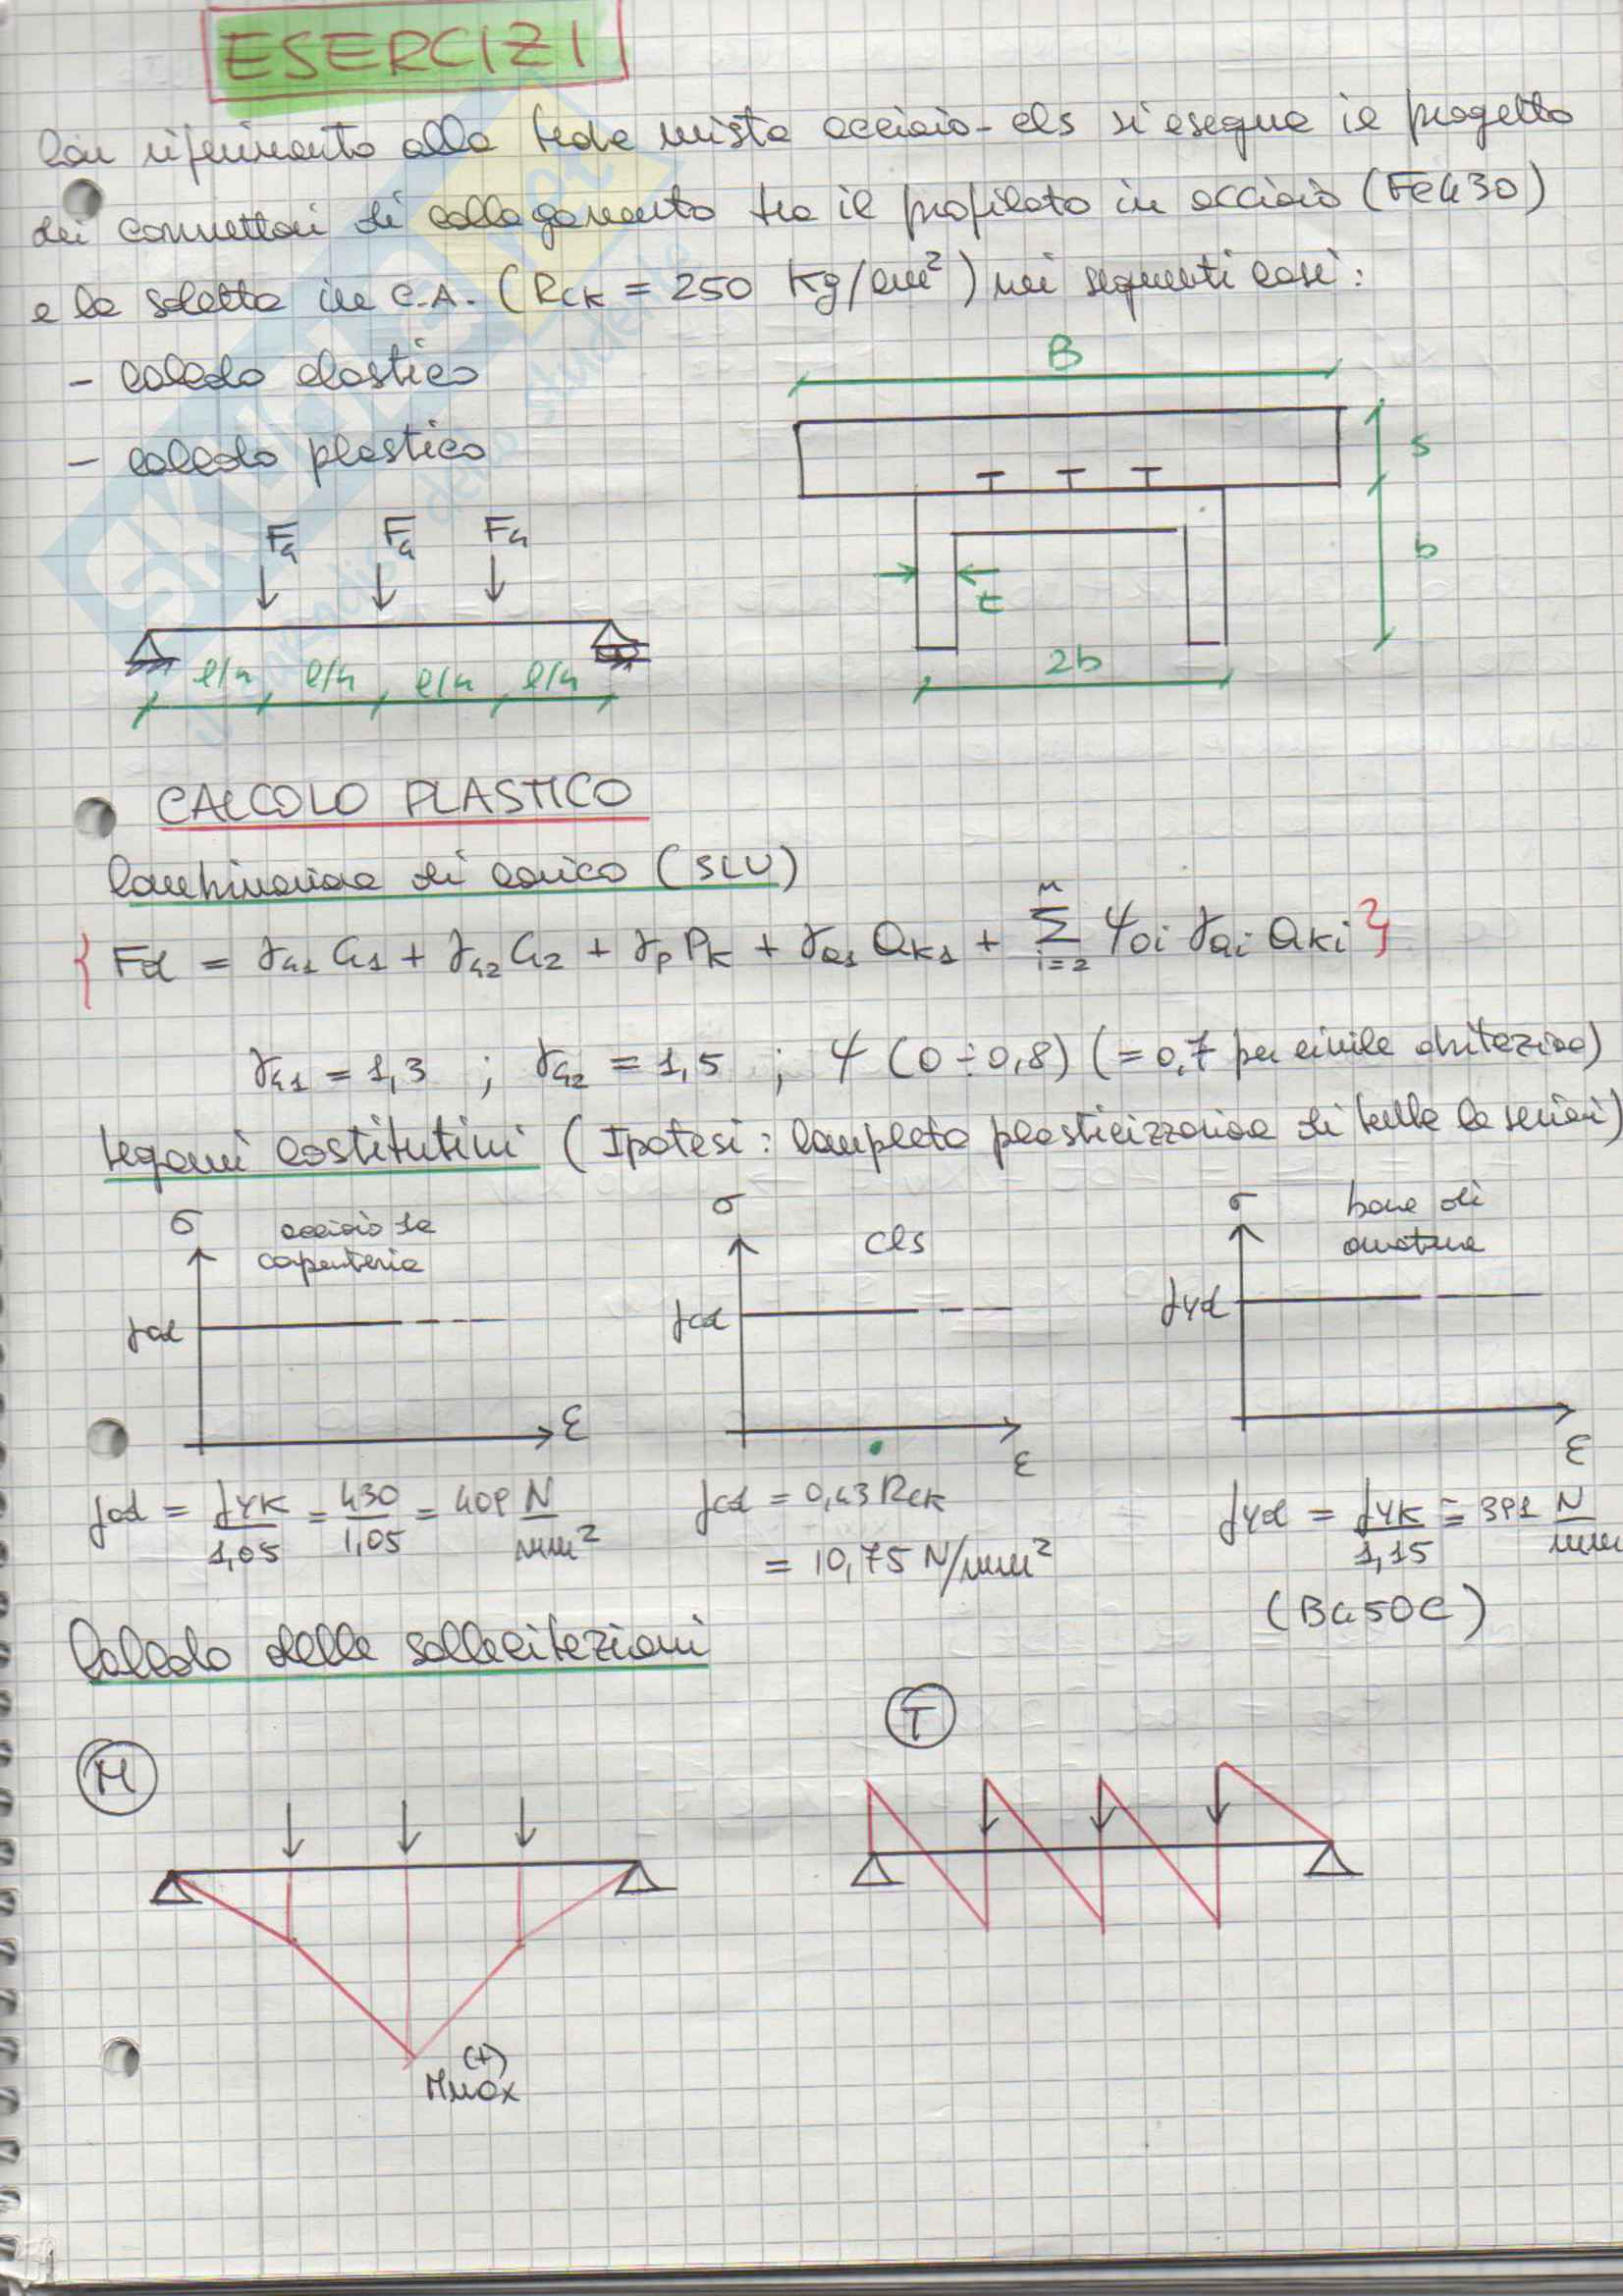 ESERCIZI
Con riferimento alla trave mista acciaio-cls si esegua il progetto
dei connettori di collegamento tra il profilato in acciaio (Fe430)
e la soletta in C.A. (RCK = 250 Kg/cm²) nei seguenti casi:
- calcolo elastico
- calcolo plastico
B
s
b
t
2b
Fd Fd Fd
l/4 l/4 l/4 l/4
CALCOLO PLASTICO
Combinazione di carico (SLU)
{ Fd = γG1 G1 + γG2 G2 + γp Pk + γQ1 QK1 + Σ i=2 n ψ0i γQi QKi }
γG1 = 1,3 ; γG2 = 1,5 ; ψ (0÷0,8) (= 0,7 per civile abitazione)
Legami costitutivi (Ipotesi: Completa plasticizzazione di tutta la sezione)
σ acciaio da carpenteria
σ cls
σ barre di armatura
fad
fcd
fyd
ε
ε
ε
fad = fyk/1,05 = 430/1,05 = 409 N/mm²
fcd = 0,43 Rck
= 10,75 N/mm²
fyd = fyk/1,15 = 391 N/mm
(B450C)
Calcolo delle sollecitazioni
M
T
Mmax (+)
SKUOLA.net